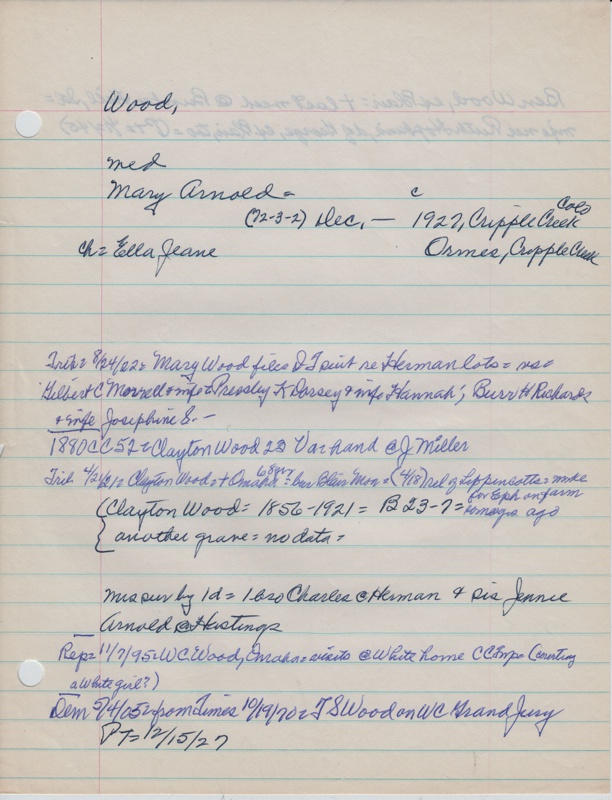 Wood,
med
Mary Arnold =
(72-3-2) Dec, — c 1927, Cripple Creek Colo
ch = Ella Jeane Ormes, Cripple Creek
Trib = 8/24/22 = Mary Wood files D T suit re Herman lots = vs =
Gilbert C Morrell & wife & Pressley K Dorsey & wife Hannah; Burr H Richards
& wife Josephine S. -
1880 CC 52 = Clayton Wood 23 Va hand @ J Miller
Trib 4/2/21 = Clayton Wood = + Omaha 68 yr = bur Blair Mon = (4/18) rel of Lippencotts = mke
for Eph on farm
yrs ago
(Clayton Wood = 1856-1921 = B 23-7 =
{ another grave = no data =
mrs sur by 1 d = 1 bro Charles @ Herman & sis Jennie
Arnold @ Hastings
Rep = 11/7/95 = W C Wood, Omaha = visits @ White home CC (courting
a White girl?)
Dem 5/4/05 = from Times 10/19/70 = T S Wood on WC Grand Jury
PT = 12/15/27